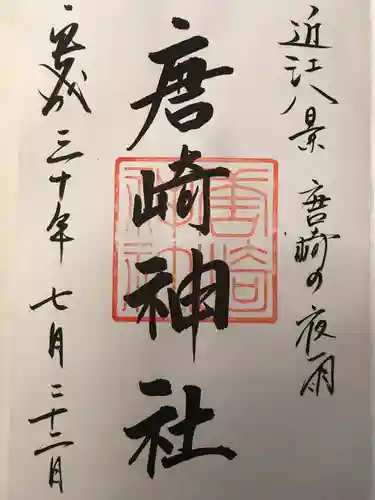 近江八景 唐崎の夜雨
唐崎神社
平成三十年 七月二十二日
唐崎神社